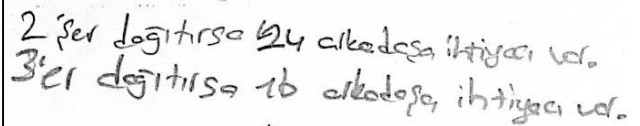 2'şer dağıtırsa 24 arkadaşa ihtiyacı var.
3'er dağıtırsa 16 arkadaşa ihtiyacı var.